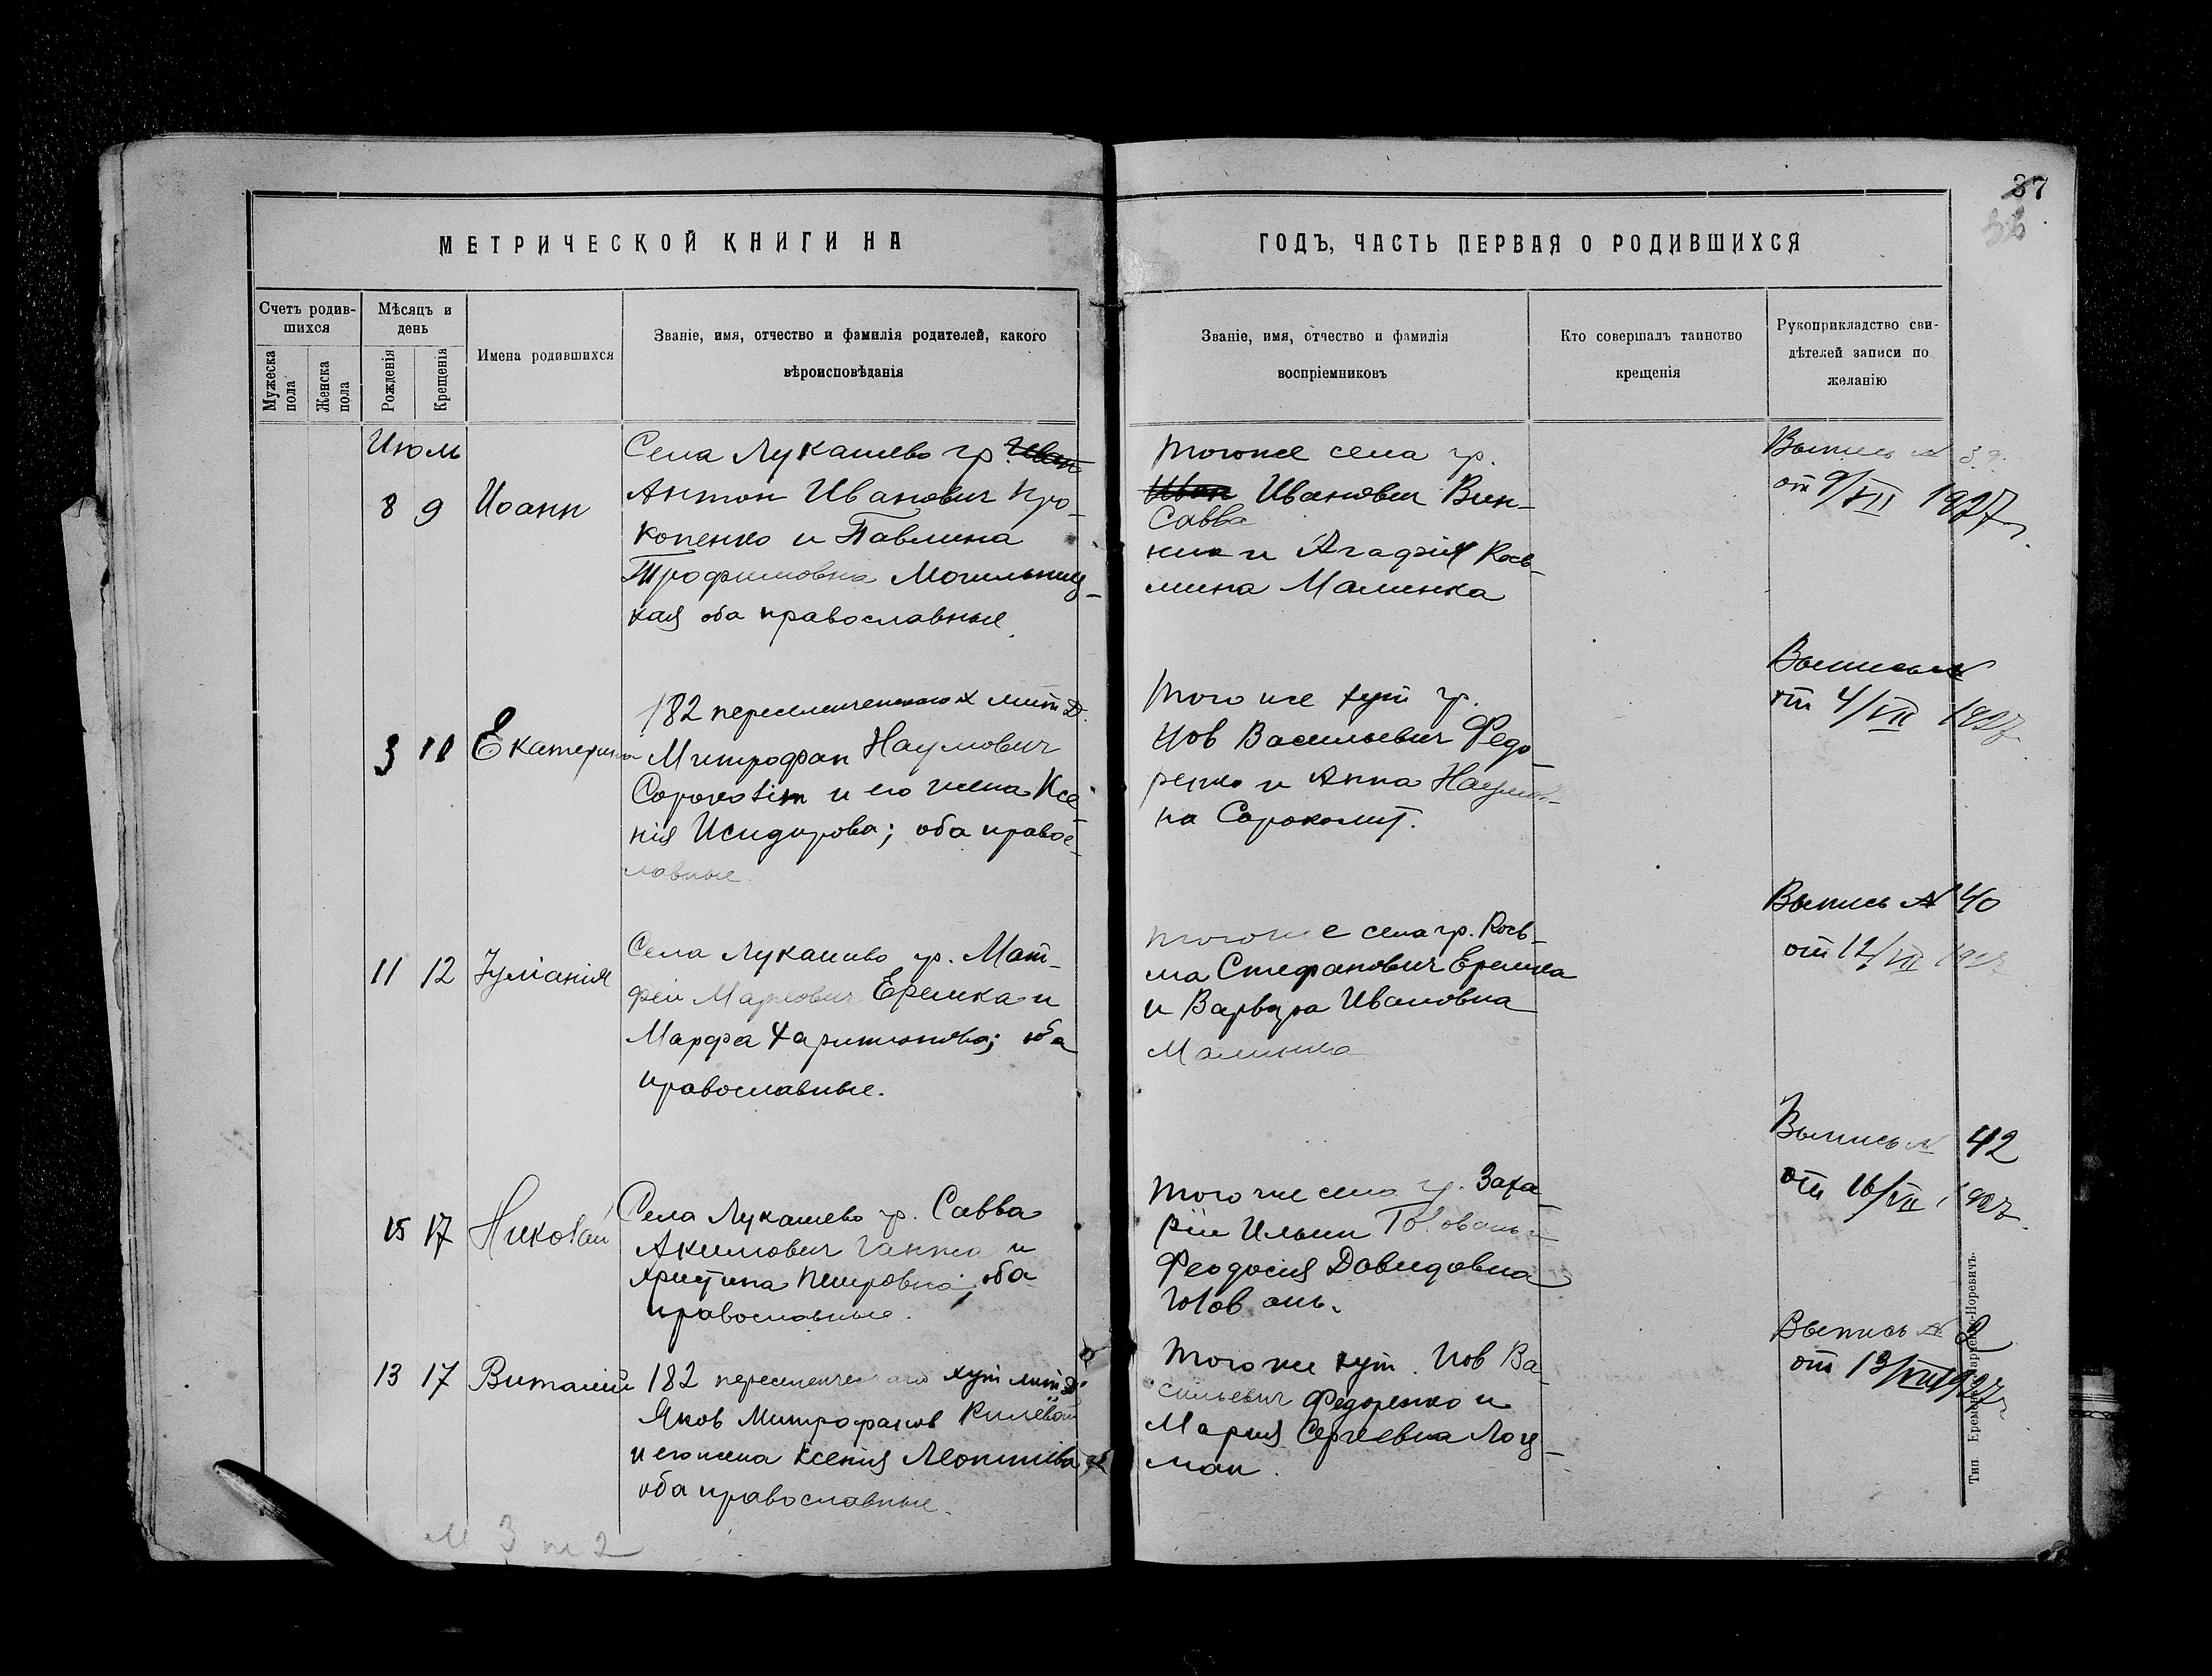 37
36
МЕТРИЧЕСКОЙ КНИГИ НА
ГОДЪ, ЧАСТЬ ПЕРВАЯ О РОДИВШИХСЯ
Счетъ родив-
шихся
Мужеска
пола
Женска
пола
Мѣсяцъ и
день
Рожденія
Крещенія
Имена родившихся
Званіе, имя, отчество и фамилія родителей, какого
вѣроисповѣданія
Званіе, имя, отчество и фамилія
воспріемниковъ
Кто совершалъ таинство
крещенія
Рукоприкладство сви-
дѣтелей записи по
желанію
Июль
8 9 Иоанн
Села Лукашево гр. Иван
Антон Иванович Про-
копенко и Павлина
Трофимовна Могильниц-
кая оба православные
тогоже села гр.
Иван Иванович Вин-
Савва
ник и Агафия Кось-
мина Малинка
Выпись №
от 9/VII 1927
3 11 Екатерина
182 переселенческого х лит Д.
Митрофан Наумович
Сорокolит и его жена Ксе-
ния Исидорова; оба правос-
лавные
того же хут гр.
Иов Васильевич Федо-
ренко и Анна Наумов-
на Сороколит.
Выпись №
от 4/VII 1927
11 12 Іуліанія
Села Лукашево гр. Мат-
фей Маркович Еремка и
Марфа Харитонова; оба
православные.
тогоже села гр. Кось-
ма Стефанович Еремка
и Варвара Ивановна
Малинка
Выпись № 40
от 12/VII 1927
15 17 Николай
Села Лукашево гр. Савва
Акимович Ганжа и
Христина Петровна; оба
православные.
того же села гр. Заха-
рий Ильин Головань и
Феодосия Давидовна
Головань.
Выпись № 42
от 16/VII 1927.
13 17 Виталий
182 переселенческаго хут лит Д
Яков Митрофанов
и его жена Ксения Леонтиева
оба православные.
того же хут. Иов Ва-
сильевич Федоренко и
Мария Сергеевна Лоц-
ман.
Выпись №
от 13/VIII 1927
М 3 ж 2